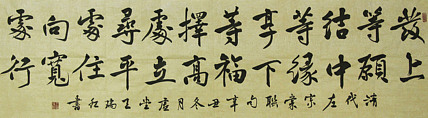 發上
等願
結中
等緣
享下
等福
擇高
處立
尋平
處住
向寬
處行
清代左宗棠聯句辛丑冬月王瑞紅書